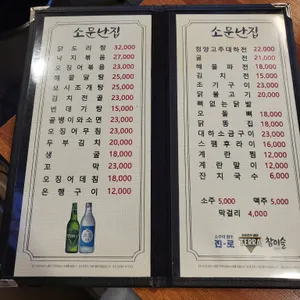 소문난집
닭도리탕 32,000
낙지볶음 27,000
오징어볶음 23,000
해물알탕 25,000
모시조개탕 25,000
김치전골 23,000
번데기탕 15,000
골뱅이와소면 23,000
오징어무침 23,000
두부김치 20,000
생굴 18,000
꼬막 23,000
오징어데침 18,000
은행구이 12,000
소문난집
청양고추대하전 22,000
굴전 21,000
해물파전 18,000
김치전 15,000
조기구이 23,000
닭불고기 20,000
뼈없는닭발
오돌뼈 18,000
닭똥집 18,000
대하소금구이 23,000
스팸후라이 16,000
계란찜 12,000
계란말이 12,000
잔치국수 6,000
소주 5,000 맥주 5,000
막걸리 4,000
진로
TERRA
참이슬